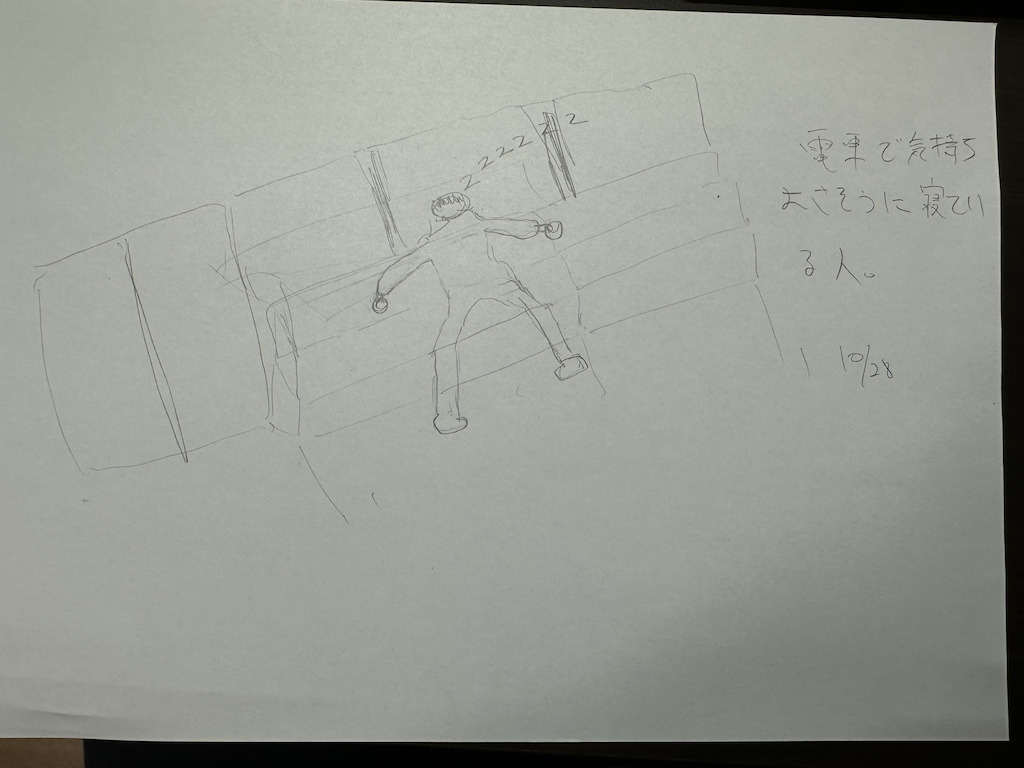 zzzzzzz
電車で気持ち
よさそうに寝てい
る人。
10/28